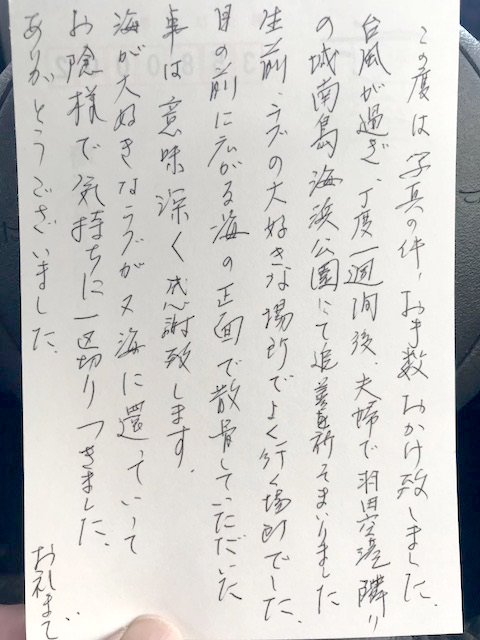 この度は写真の件、お手数おかけ致しました。
台風が過ぎ、丁度一週間後、夫婦で羽田空港隣り
の城南島海浜公園にて追善を祈ってまいりました
生前、ラブの大好きな場所でよく行く場所でした。
目の前に広がる海の正面で散骨していただいた
事は意味深く感謝致します。
海が大好きなラブが又海に還っていって
お陰様で気持ちに一区切りつきました。
ありがとうございました。
お礼まで